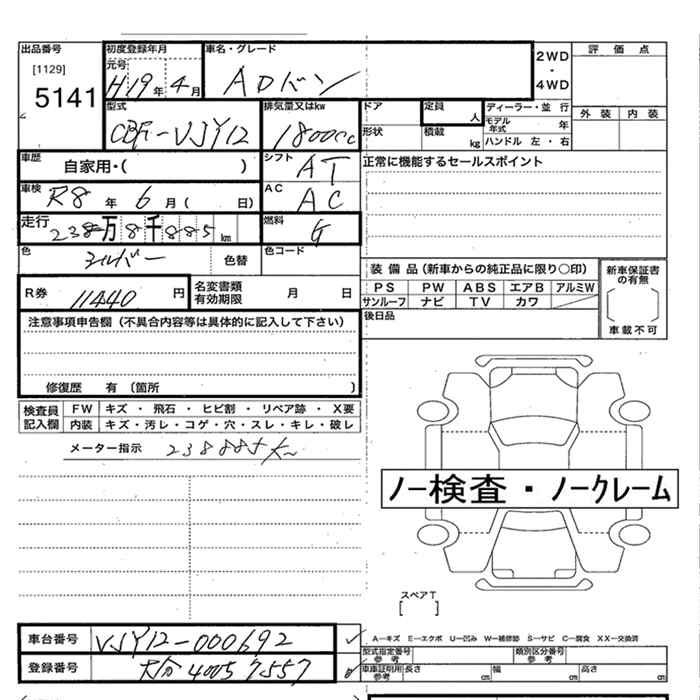 出品番号
[1129]
5141
初度登録年月
元号
H19年 4月
車名・グレード
ADバン
2WD
・
4WD
評価点
外装 内装
型式
CBF-VJY12
排気量又はkw
1800cc
ドア
形状
定員
人
積載
kg
ディーラー・並行
モデル年式 年
ハンドル 左・右
車歴
自家用・( )
シフト
AT
正常に機能するセールスポイント
車検
R8年 6月( 日)
AC
AC
走行
238万8千885km
燃料
G
色
シルバー
色替
色コード
R券
11440円
名変書類
有効期限
月 日
装備品(新車からの純正品に限り○印)
PS PW ABS エアB アルミW
サンルーフ ナビ TV カワ
新車保証書
の有無
車載不可
後日品
注意事項申告欄(不具合内容等は具体的に記入して下さい)
修復歴 有 (箇所 )
検査員
記入欄
FW キズ・飛石・ヒビ割・リペア跡・X要
内装 キズ・汚レ・コゲ・穴・スレ・キレ・破レ
メーター指示 238885km
ノー検査・ノークレーム
スペアT
[ ]
車台番号 VJY12-000692
登録番号 大分 400 57557
A―キズ E―エクボ U―凹み W―補修跡 S―サビ C―腐食 XX―交換済
型式指定番号
参考
類別区分番号
参考
車車証明用
参考
長さ cm
幅 cm
高さ cm